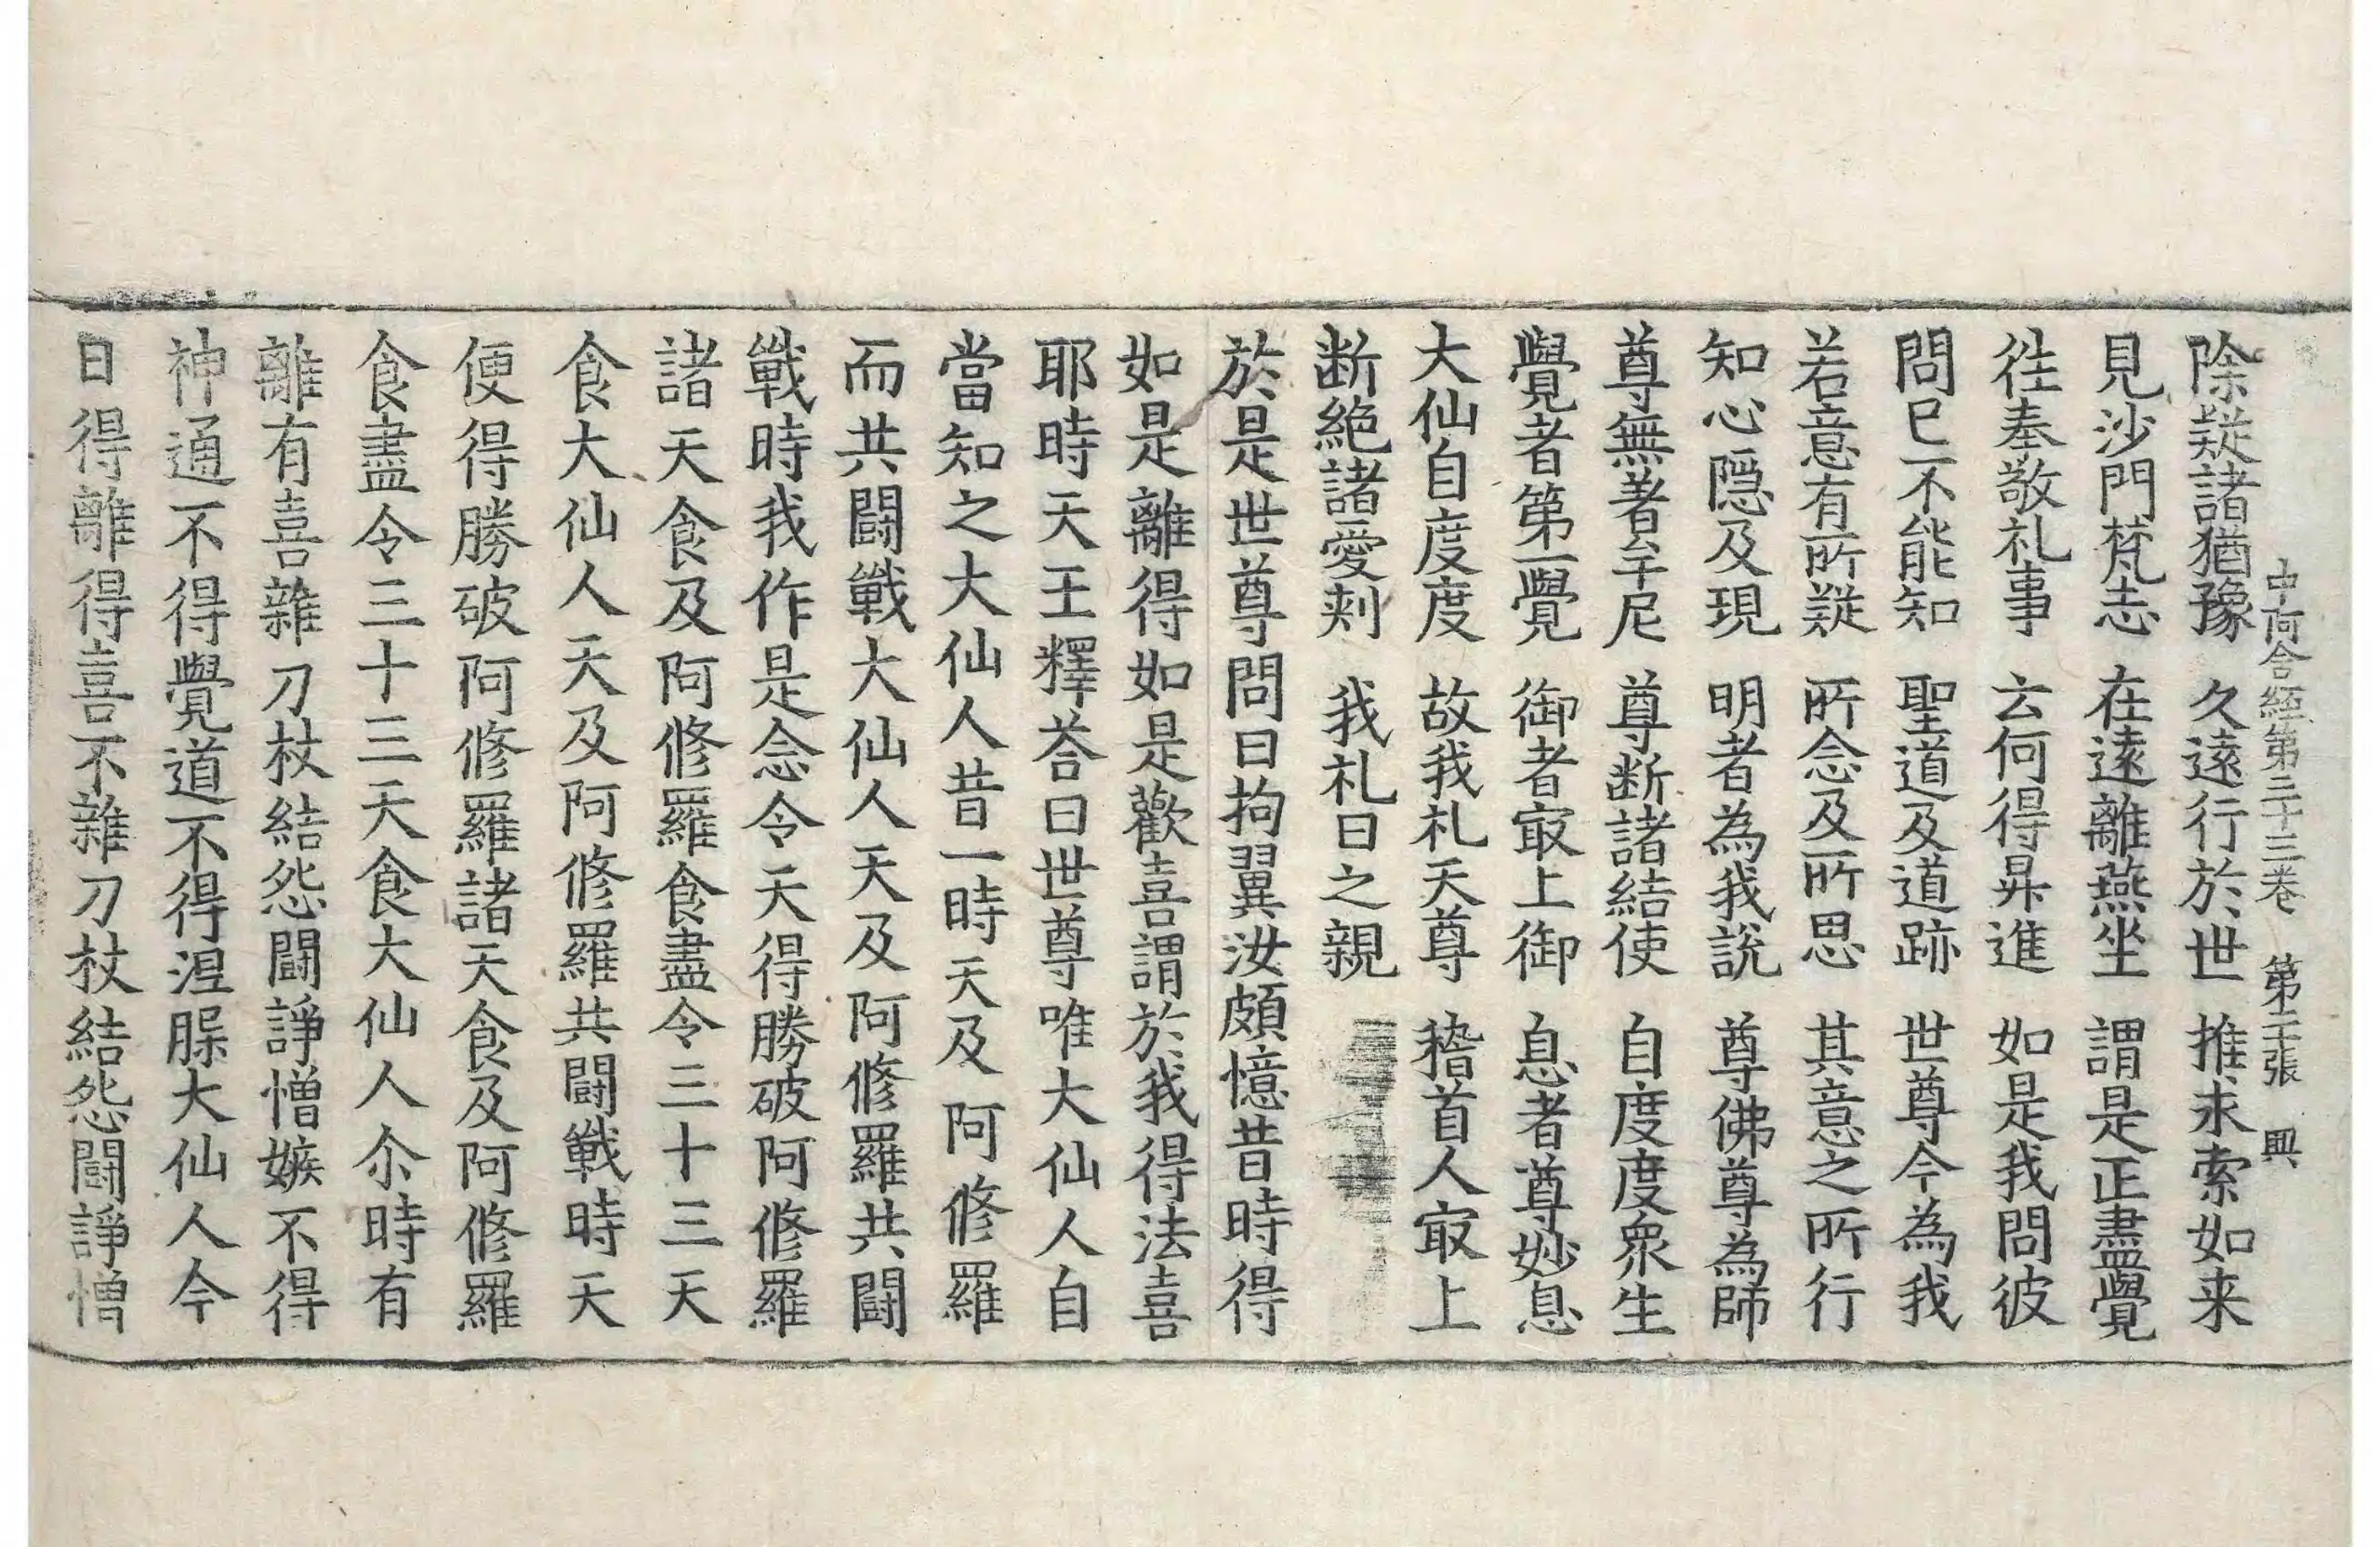 中阿含經第三十三卷　第二十張　興
除疑諸猶豫　久遠行於世　推求索如来
見沙門梵志　在遠離燕坐　謂是正盡覺
往奉敬礼事　云何得昇進　如是我問彼
問已不能知　聖道及道跡　世尊今為我
若意有所疑　所念及所思　其意之所行
知心隱及現　明者為我說　尊佛尊為師
尊無著牟尼　尊断諸結使　自度度衆生
覺者第一覺　御者冣上御　息者尊妙息
大仙自度度　故我礼天尊　稽首人冣上
断絶諸愛刾　我礼日之親
於是世尊問曰拘翼汝頗憶昔時得
如是離得如是歡喜謂於我得法喜
耶時天王釋荅曰世尊唯大仙人自
當知之大仙人昔一時天及阿修羅
而共鬪戰大仙人天及阿修羅共鬪
戰時我作是念令天得勝破阿修羅
諸天食及阿修羅食盡令三十三天
食大仙人天及阿修羅共鬪戰時天
便得勝破阿修羅諸天食及阿修羅
食盡令三十三天食大仙人尒時有
離有喜雜刀杖結怨鬪諍憎嫉不得
神通不得覺道不得涅脲大仙人今
日得離得喜不雜刀杖結怨鬪諍憎